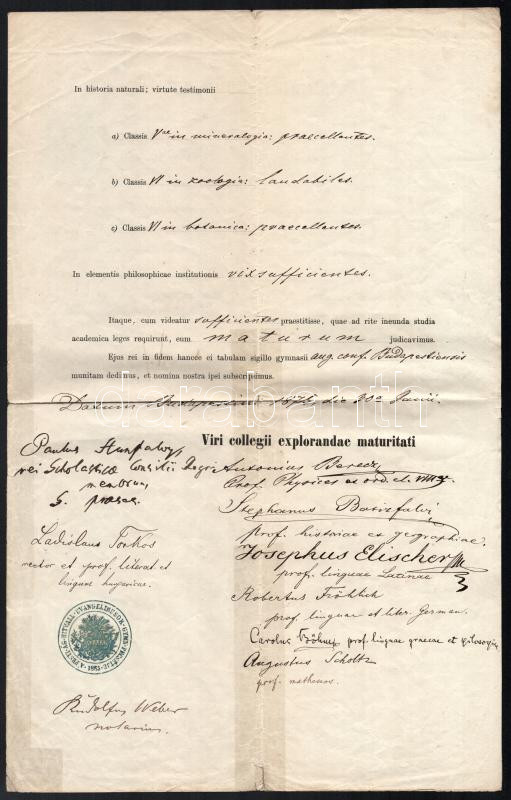 In historia naturali; virtute testimonii
a) Classis Vae in mineralogia: praecellentes.
b) Classis VI in zoologia: laudabiles.
c) Classis VI in botanica: praecellentes.
In elementis philosophicae institutionis vix sufficientes.
Itaque, cum videatur sufficientes praestitisse, quae ad rite ineunda studia
academica leges requirunt, eum maturum judicavimus.
Ejus rei in fidem hancce ei tabulam sigillo gymnasii aug. conf. Budapestiensis
munitam dedimus, et nomina nostra ipsi subscripsimus.
Datum Budapestini 187 die 30a Junii.
Viri collegii explorandae maturitati
Paulus Hunfalvy
rei Scholasticae Consilii Regii
membrum
praeses
Antonius Berecz
Prof. Physices
Stephanus Batizfalvi
prof. historiae et geographiae.
Ladislaus Torkos
rector et prof. literat. et
linguae hungaricae.
Josephus Elischer
prof. linguae Latinae
Robertus Fröhlich
prof. linguae et liter. German.
Carolus Böhm prof. linguae graecae et philosophiae
Augustus Scholtz
prof. mathes.
Rudolfus Weber
notarius.
darabanth